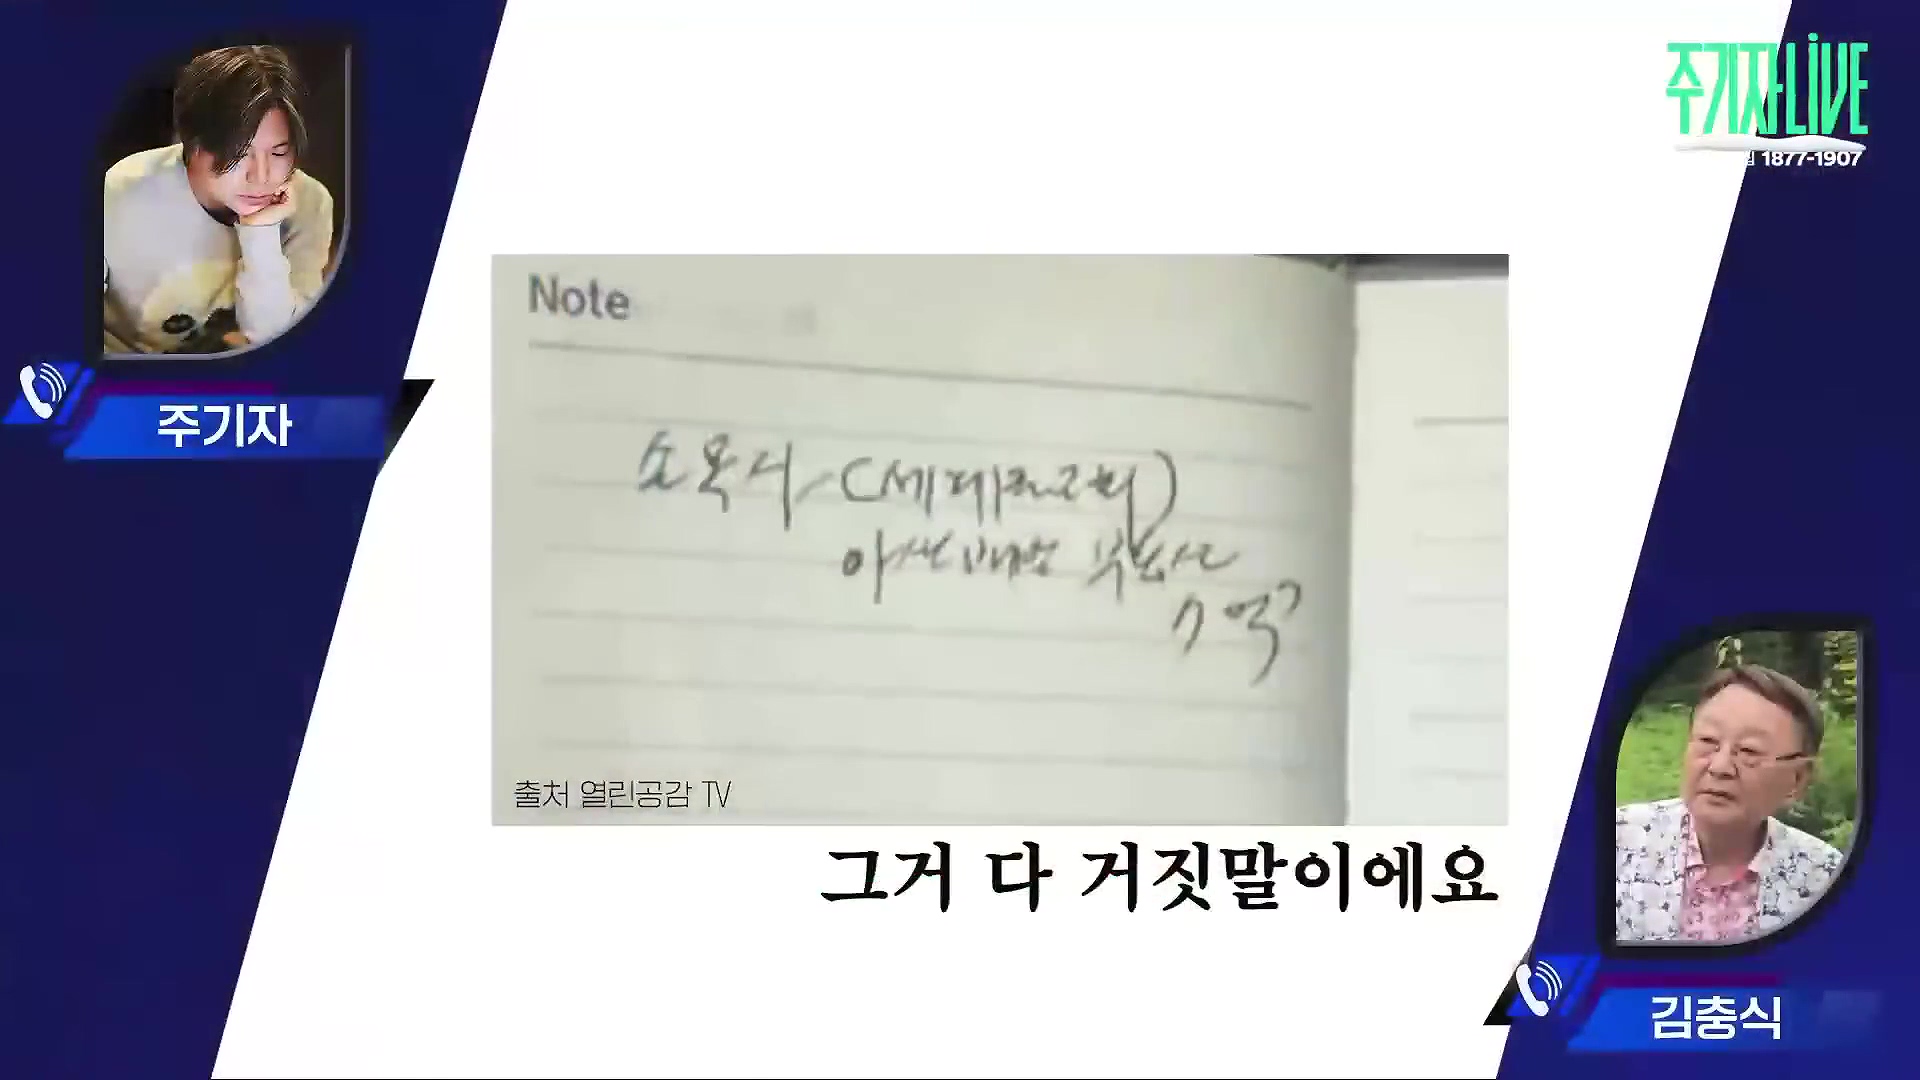 주기자LIVE
1877-1907
주기자
Note
소목사 (세계로교회)
7억
출처 열린공감 TV
그거 다 거짓말이에요
김충식